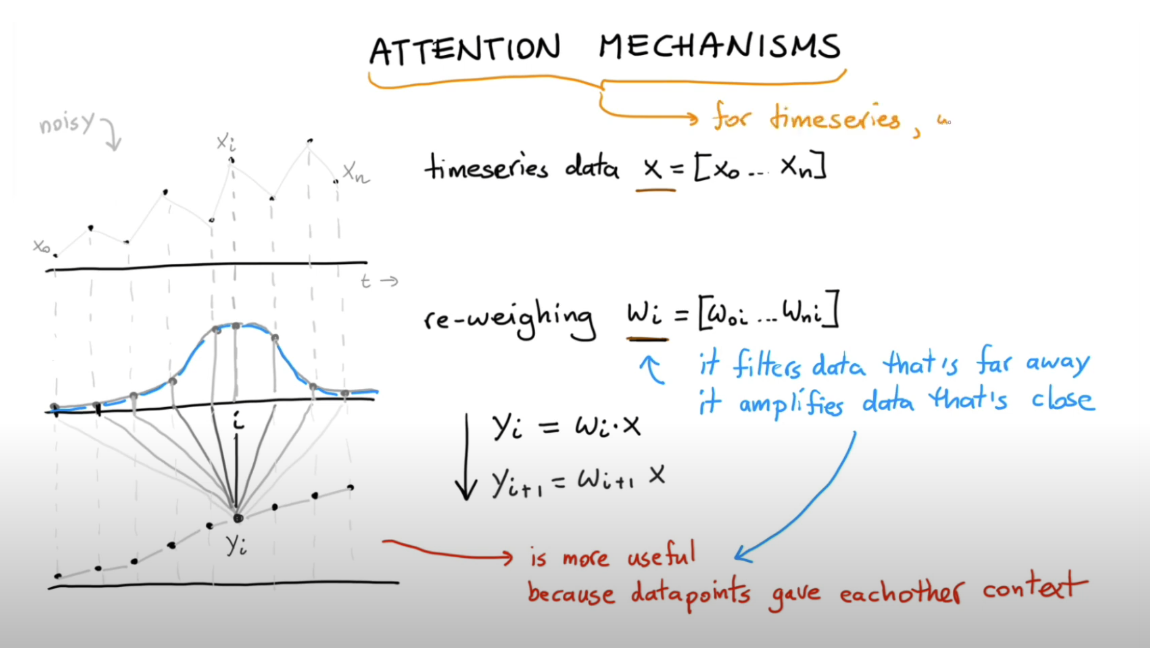 ATTENTION MECHANISMS
for timeseries,
noisy
xi
xn
x₀
t →
timeseries data x = [x₀ ... xn]
re-weighing wi = [w₀i ... wni]
it filters data that is far away
it amplifies data that's close
i
yi = wi · x
yi+1 = wi+1 x
yi
is more useful
because datapoints gave eachother context